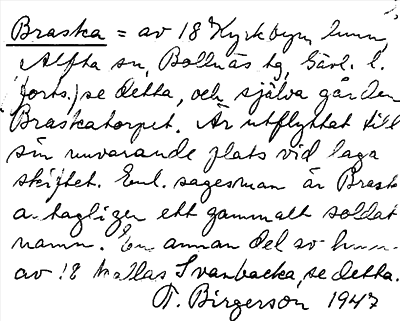 Braska = av 18 Kyrkbyns hmn,
Alfta sn, Bollnäs tg, Gävl. l.
(forts.) se detta, och själva gården
Braskatorpet. Är utflyttat till
sin nuvarande plats vid laga
skiftet. Enl. sagesman är Brask
antagligen ett gammalt soldat
namn. En annan del av hmn.
av 18 kallas Svanbacka, se detta.
T. Birgerson 1947